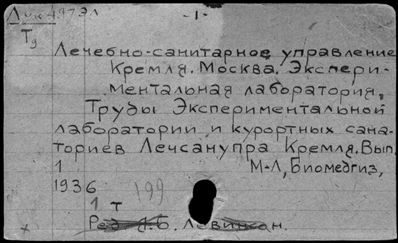 - 1 -
Ту
Лечебно-санитарное управление
Кремля. Москва. Экспери-
ментальная лаборатория.
Труды Экспериментальной
лаборатории и курортных сана-
ториев Лечсанупра Кремля. Вып.
1 М-Л, Биомедгиз,
1936 199
1 т
Ред. Я.Б. Левинсон.